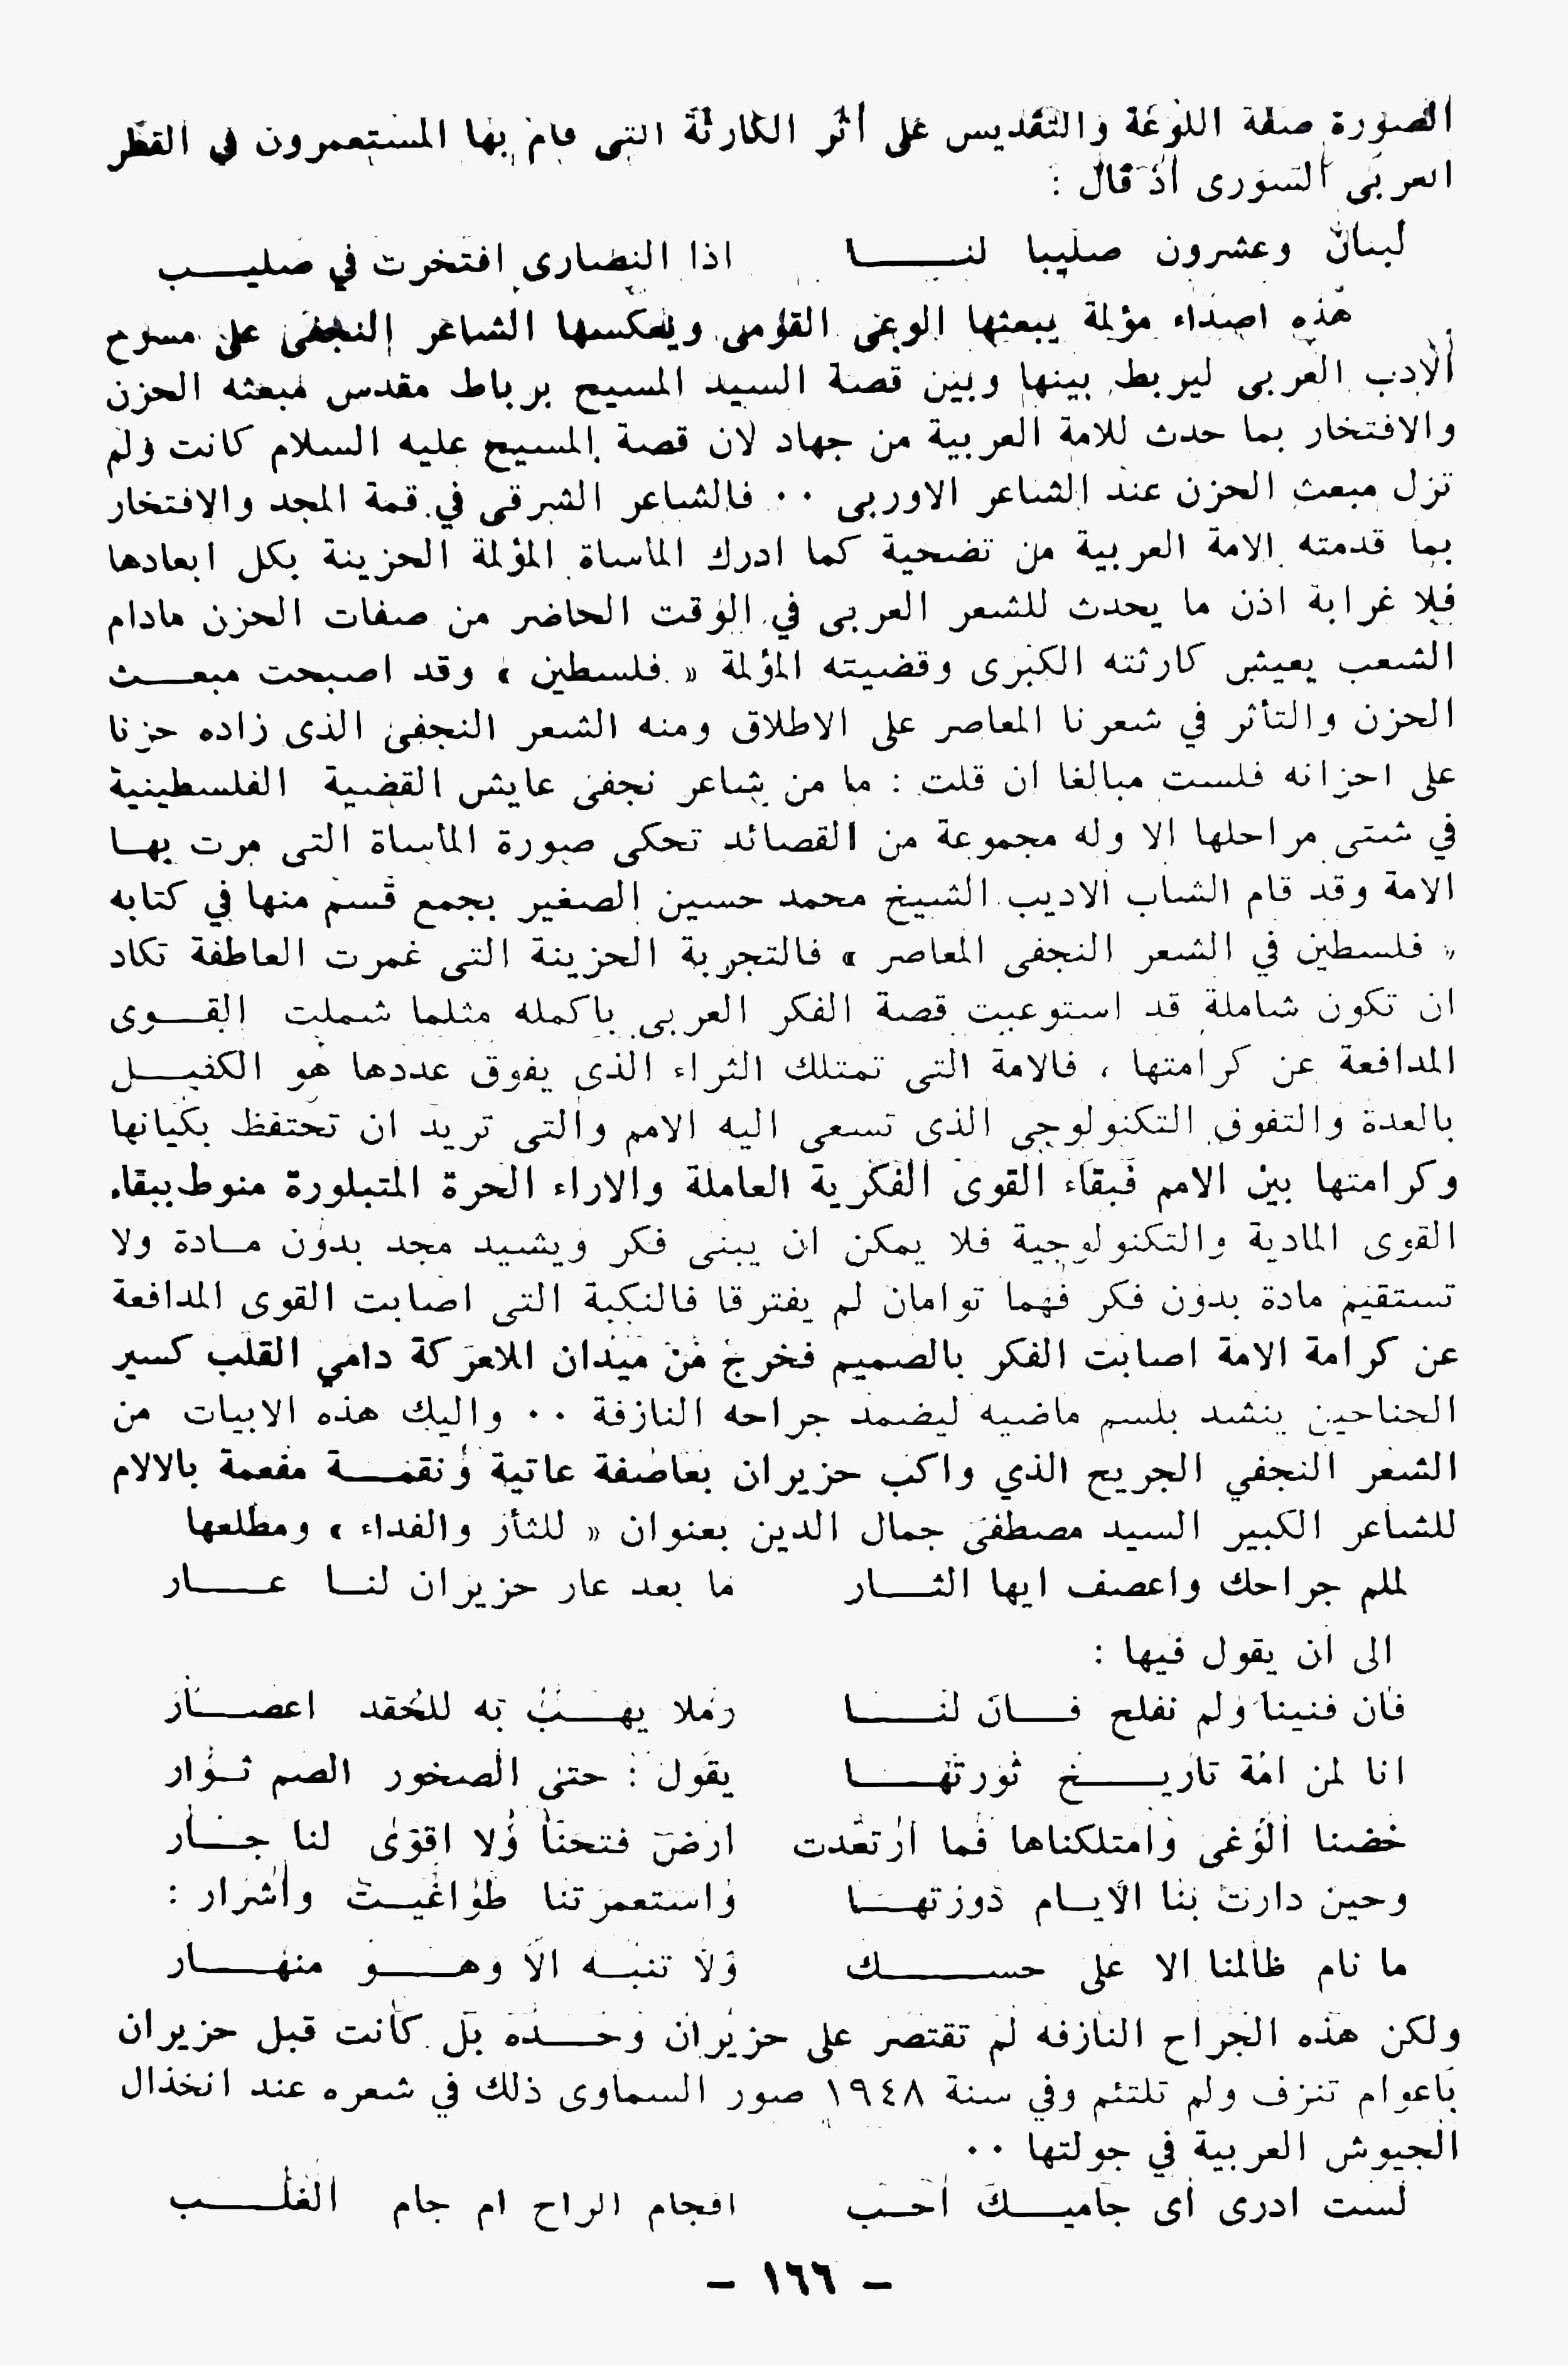 الصورة صفة اللوعة والتقديس على أثر الكارثة التى قام بها المستعمرون في القطر
العربى السورى اذ قال :
لبنان وعشرون صليبا لنـــــا اذا النصارى افتخرت في صليـــب
هذه اصداء مؤلمة يبعثها الوعى القومى ويعكسها الشاعر النجفى على مسرح
الادب العربى ليربط بينها وبين قصة السيد المسيح برباط مقدس مبعثه الحزن
والافتخار بما حدث للامة العربية من جهاد لان قصة المسيح عليه السلام كانت ولم
تزل مبعث الحزن عند الشاعر الاوربى ٠٠ فالشاعر الشرقى في قمة المجد والافتخار
بما قدمته الامة العربية من تضحية كما ادرك المأساة المؤلمة الحزينة بكل ابعادها
فلا غرابة اذن ما يحدث للشعر العربى في الوقت الحاضر من صفات الحزن مادام
الشعب يعيش كارثته الكبرى وقضيته المؤلمة « فلسطين » وقد اصبحت مبعـــث
الحزن والتأثر في شعرنا المعاصر على الاطلاق ومنه الشعر النجفى الذى زاده حزنا
على احزانه فلست مبالغا ان قلت : ما من شاعر نجفى عايش القضية الفلسطينية
في شتى مراحلها الا وله مجموعة من القصائد تحكى صورة المأساة التى مرت بهـا
الامة وقد قام الشاب الاديب الشيخ محمد حسين الصغير بجمع قسم منها في كتابه
« فلسطين في الشعر النجفى المعاصر » فالتجربة الحزينة التى غمرت العاطفة تكاد
ان تكون شاملة قد استوعبت قصة الفكر العربى باكمله مثلما شملت القــوى
المدافعة عن كرامتها ، فالامة التى تمتلك الثراء الذى يفوق عددها هو الكفيـــل
بالعدة والتفوق التكنولوجى الذى تسعى اليه الامم والتى تريد ان تحتفظ بكيانها
وكرامتها بين الامم فبقاء القوى الفكرية العاملة والاراء الحرة المتبلورة منوط ببقاء
القوى المادية والتكنولوجية فلا يمكن ان يبنى فكر ويشيد مجد بدون مــادة ولا
تستقيم مادة بدون فكر فهما توامان لم يفترقا فالنكبة التى اصابت القوى المدافعة
عن كرامة الامة اصابت الفكر بالصميم فخرج من ميدان المعركة دامي القلب كسير
الجناحين ينشد بلسم ماضيه ليضمد جراحه النازفة ٠٠ واليك هذه الابيات من
الشعر النجفي الجريح الذي واكب حزيران بعاصفة عاتية ونقمـــة مفعمة بالالام
للشاعر الكبير السيد مصطفى جمال الدين بعنوان « للثأر والفداء » ومطلعها
لملم جراحك واعصف ايها الثــــار ما بعد عار حزيران لنــا عــــار
الى ان يقول فيها :
فان فنينا ولم نفلح فـــان لنــــا رملا يهـــب به للحقد اعصــار
انا لمن امة تاريـــــخ ثورتهـــــا يقول : حتى الصخور الصم ثــوار
خضنا الوغى وامتلكناها فما ارتعدت ارض فتحنا ولا اقوى لنا جــار
وحين دارت بنا الايــام دورتهـــا واستعمرتنا طواغيــت واشرار :
ما نام ظالمنا الا على حســــــك ولا تنبــه الا وهـــــو منهــــار
ولكن هذه الجراح النازفه لم تقتصر على حزيران وحـــده بل كانت قبل حزيران
باعوام تنزف ولم تلتئم وفي سنة ١٩٤٨ صور السماوى ذلك في شعره عند انخذال
الجيوش العربية في جولتها ٠٠
لست ادرى اى جاميــــك احــب افجام الراح ام جام الغلـــــب
– ١٦٦ –